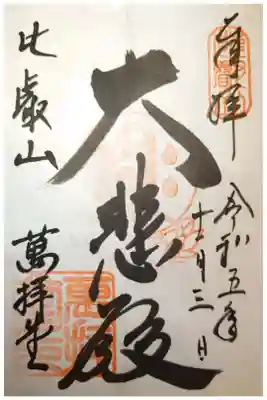 奉拝
令和五年
十二月三日
大悲殿
比叡山
萬拝堂